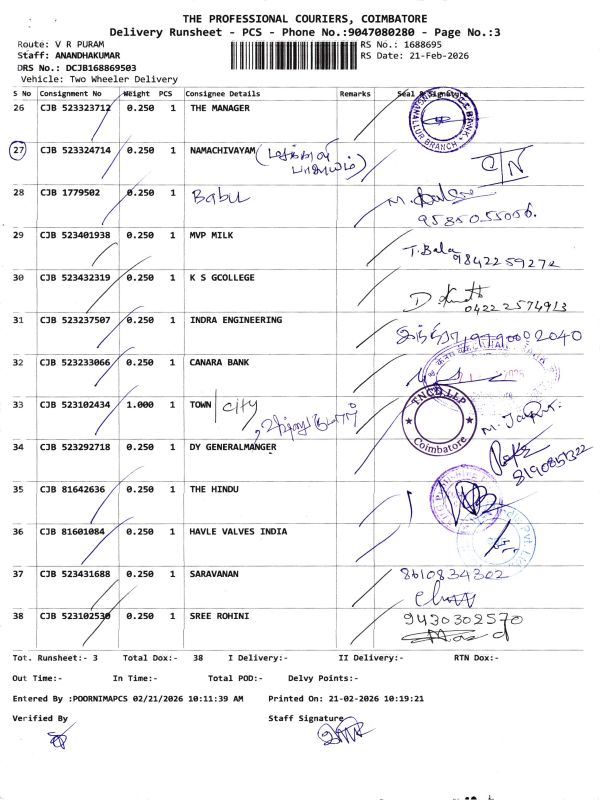 THE PROFESSIONAL COURIERS, COIMBATORE
Delivery Runsheet - PCS - Phone No.:9047080280 - Page No.:3
Route: V R PURAM
RS No.: 1688695
Staff: ANANDHAKUMAR
RS Date: 21-Feb-2026
DRS No.: DCJB168869503
Vehicle: Two Wheeler Delivery
S No Consignment No Weight PCS Consignee Details Remarks Seal & Signature
26 CJB 523323712 0.250 1 THE MANAGER
BANK BRANCH
27 CJB 523324714 0.250 1 NAMACHIVAYAM C/N
28 CJB 1779502 0.250 1 Babu
9585055056.
29 CJB 523401938 0.250 1 MVP MILK T.Bala
9842259272
30 CJB 523432319 0.250 1 K S GCOLLEGE
04222574913
31 CJB 523237507 0.250 1 INDRA ENGINEERING
32 CJB 523233066 0.250 1 CANARA BANK
33 CJB 523102434 1.000 1 TOWN / city
TNCD LLP Coimbatore
34 CJB 523292718 0.250 1 DY GENERALMANGER
8190851322
35 CJB 81642636 0.250 1 THE HINDU
36 CJB 81601084 0.250 1 HAVLE VALVES INDIA
37 CJB 523431688 0.250 1 SARAVANAN 8610834302
38 CJB 523102530 0.250 1 SREE ROHINI 9430302570
Tot. Runsheet:- 3 Total Dox:- 38 I Delivery:- II Delivery:- RTN Dox:-
Out Time:- In Time:- Total POD:- Delvy Points:-
Entered By :POORNIMAPCS 02/21/2026 10:11:39 AM Printed On: 21-02-2026 10:19:21
Verified By Staff Signature